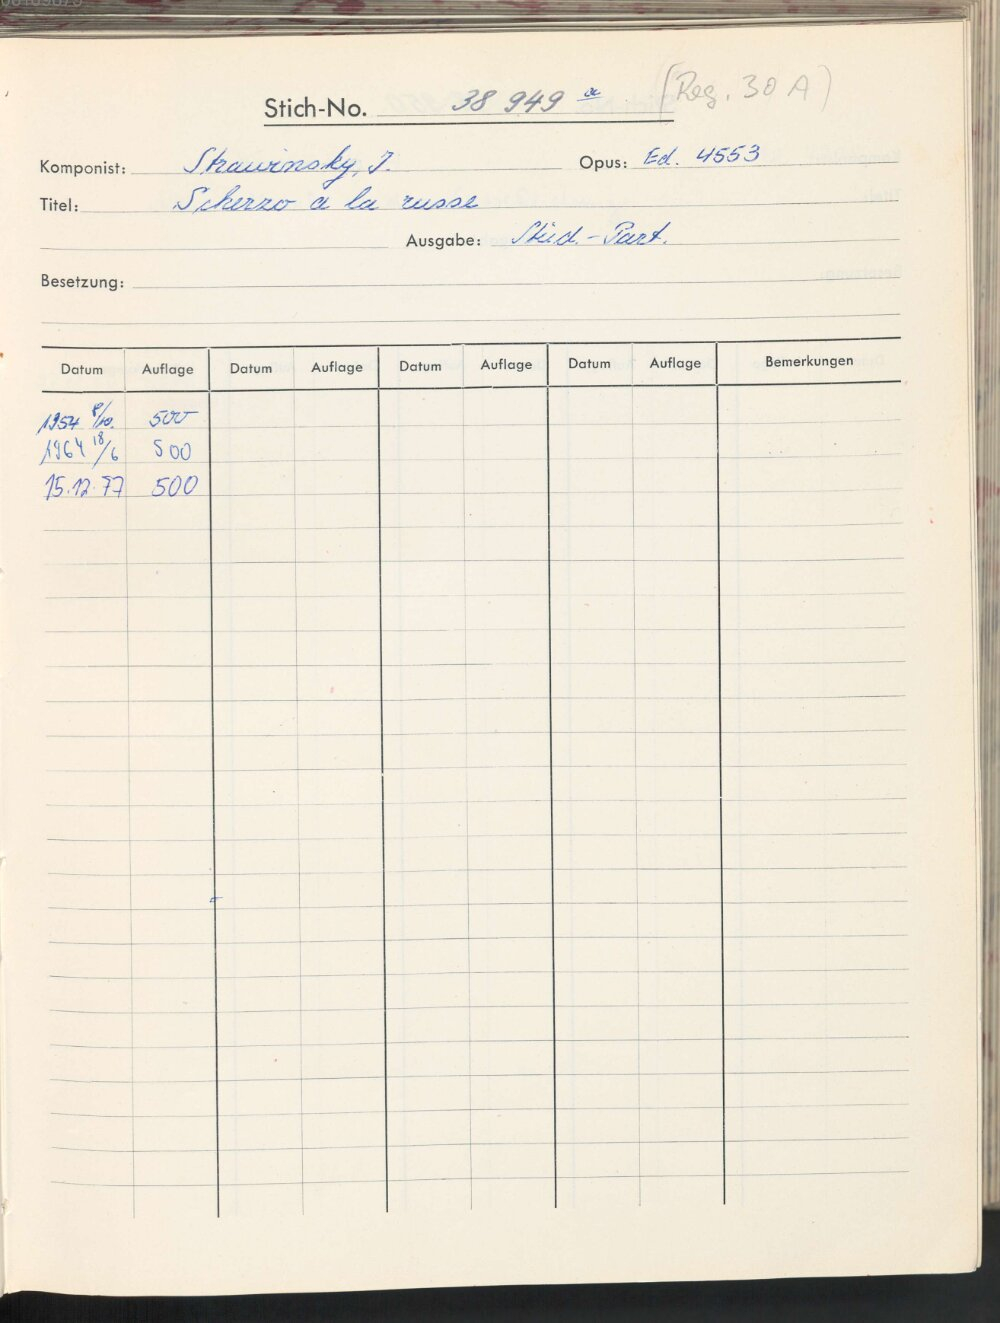 Stich-No. 38 949 a (Reg. 30 A)
Komponist: Strawinsky, I. Opus: Ed. 4553
Titel: Scherzo a la russe
Ausgabe: Stud.-Part.
Besetzung:
Datum Auflage Datum Auflage Datum Auflage Datum Auflage Bemerkungen
1954 8/10. 500
1964 18/6 500
15.12.77 500